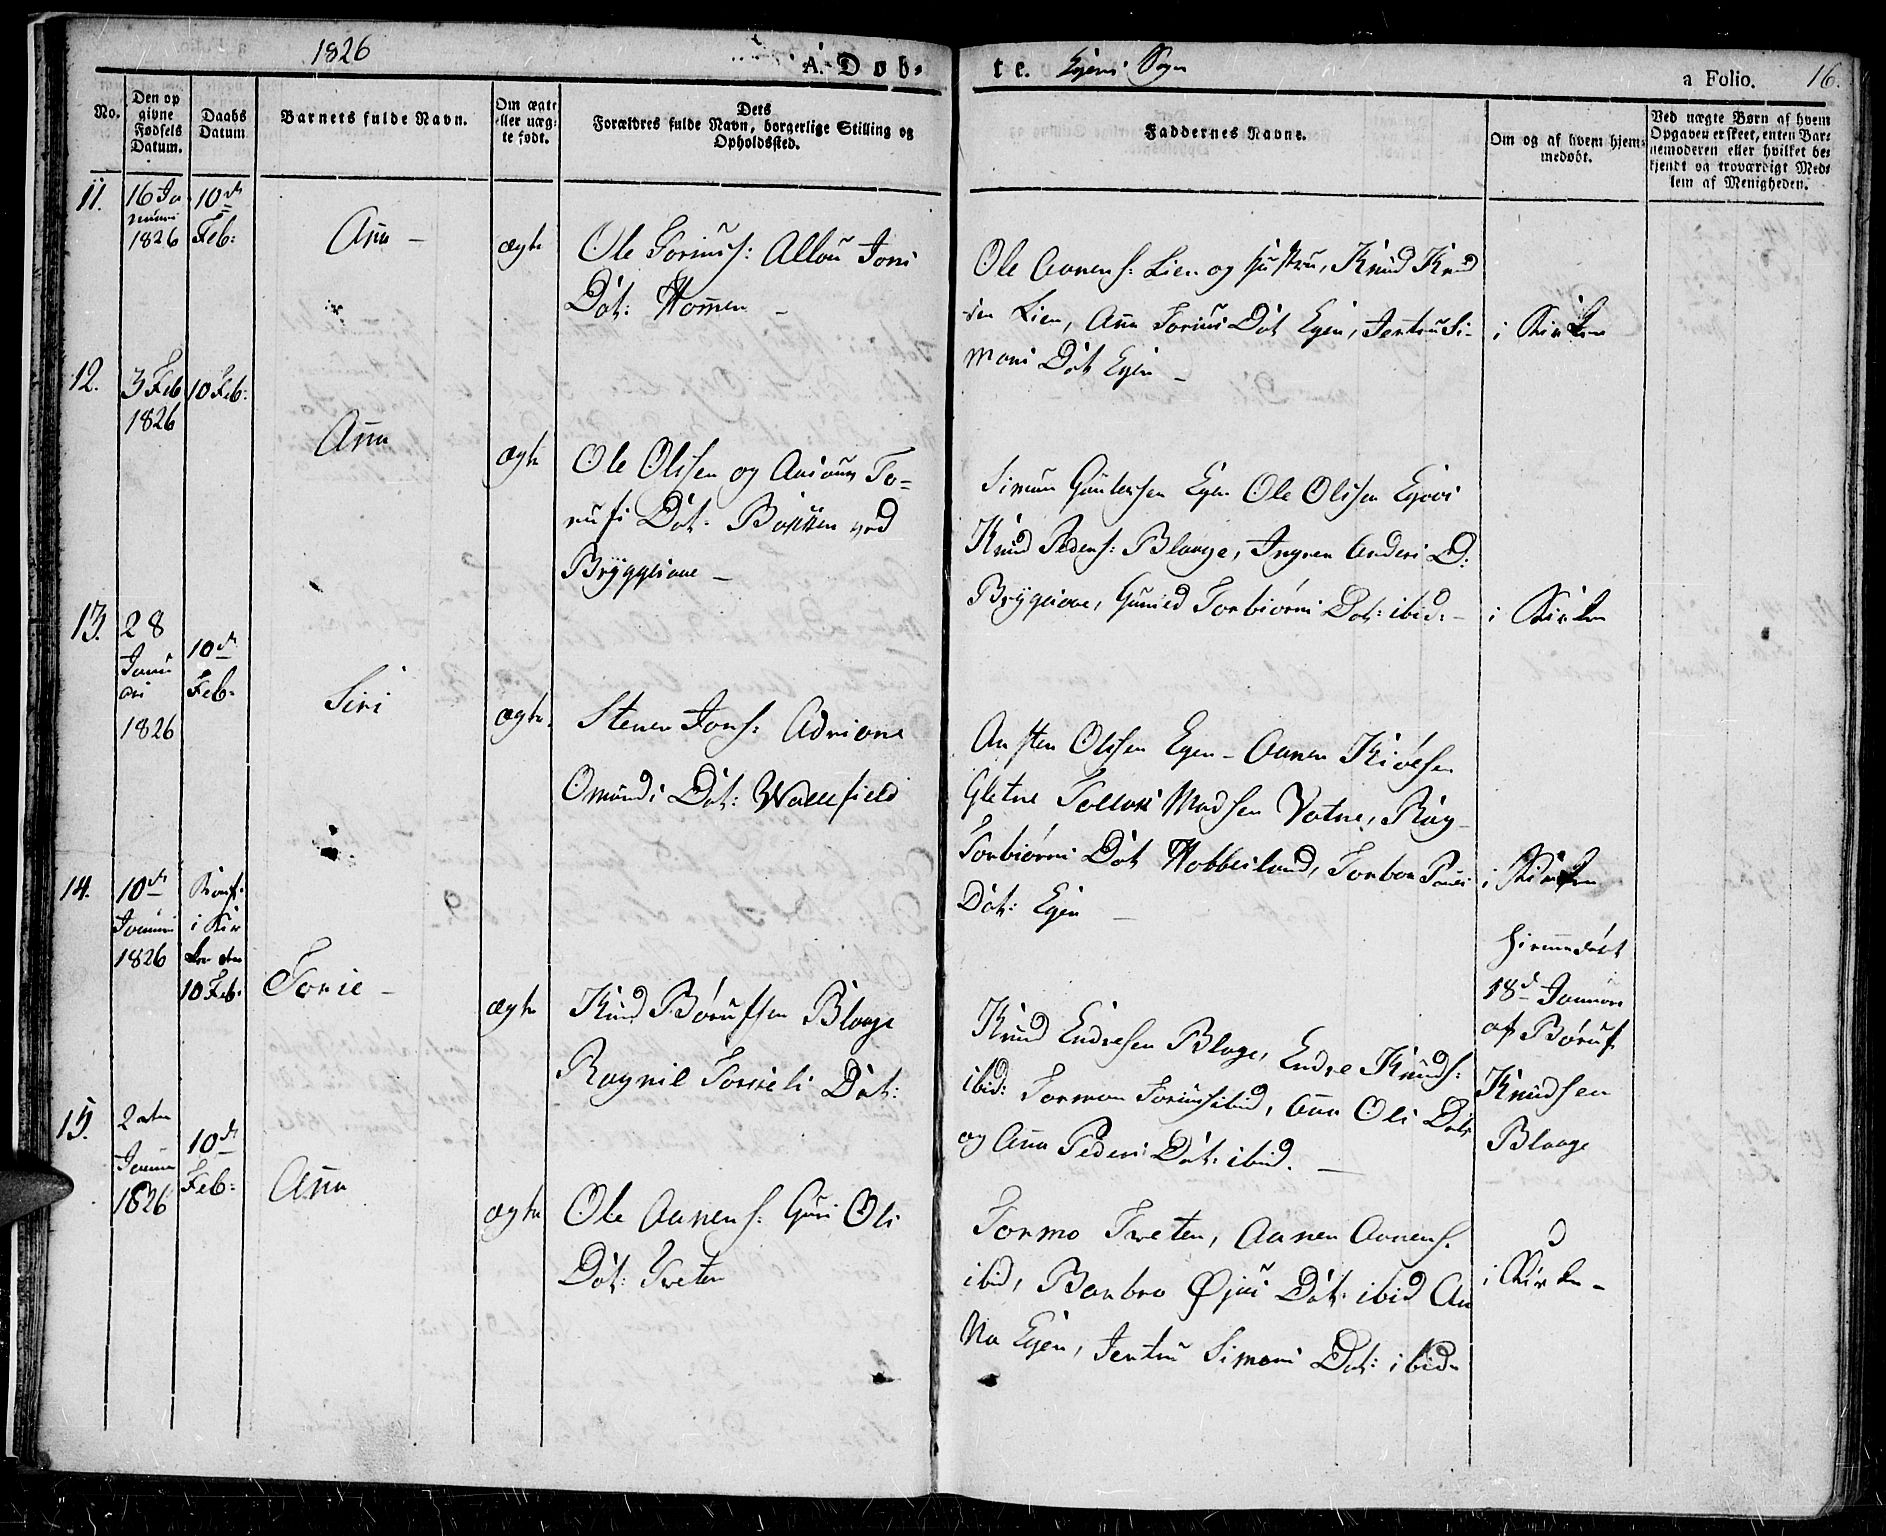 1826
A. Døb-
te. Egens Sogn
a Folio. 16.
No.
Den op
givne
Fødsels
Datum.
Daabs
Datum
Barnets fulde Navn.
Om ægte
eller uæg-
te født.
Dets
Forældres fulde Navn, borgerlige Stilling og
Opholdssted.
Faddernes Navne.
Om og af hvem hjem-
medøbt.
Ved uægte Børn af hvem
Opgaven er skeet, enten Bar-
nemoderen eller hvilket be-
kjendt og troværdigt Med-
lem af Menigheden.
11.
16 Ja
nuari
1826
10de
Feb:
Aña
ægte
Ole Torius: Allou Jons
Dat: Homen
Ole Aanens: Lien og Hustru, Knud Knud
sen Lien, Aña Torius Dat Egen, Jertru Si-
mons Dat Egen
i Kirken
12.
3 Feb
1826
10 Feb:
Aña
ægte
Ole Olssen og To-
Dat: ved
Bryggesaae
Simun Guntersen Egen Ole Olssen
Knud Peders: Blaage, Ingren Anders D:
Gunild Torbiørns Dat: ibid:
i Kirken
13.
28
Janu
ari
1826
10de
Feb:
Siri
ægte
Stener Jons: Adriane
Omunds Dat: Wallefield
Ansten Olssen Egen - Aanen
Gletne Madsen Vatne, Rag
Torbiørns Dat Hobbesland, Torbor
Dat: Egen
i Kirken
14.
10de
Januari
1826
Konf:
i Kir
ken den
10 Feb:
Torie
ægte
Knud Børufsen Blaage
Ragnil Dat:
Knud Endresen Blage, Endre Knuds:
ibid: Tormon ibid, Aña Ols Dat:
og Aña Peders Dat: ibid.
hjemmedøbt
18de Januari
af Børuf
Knudsen
Blaage
15.
2den
Januar
1826
10de
Feb:
Aña
ægte
Ole Aanens: Guri Ols
Dat: Tveten
Tormo Tveten, Aanen Aanens.
ibid, Barbro Dat: ibid An
na Egen, Jertru Simons Dat: ibid
i Kirken